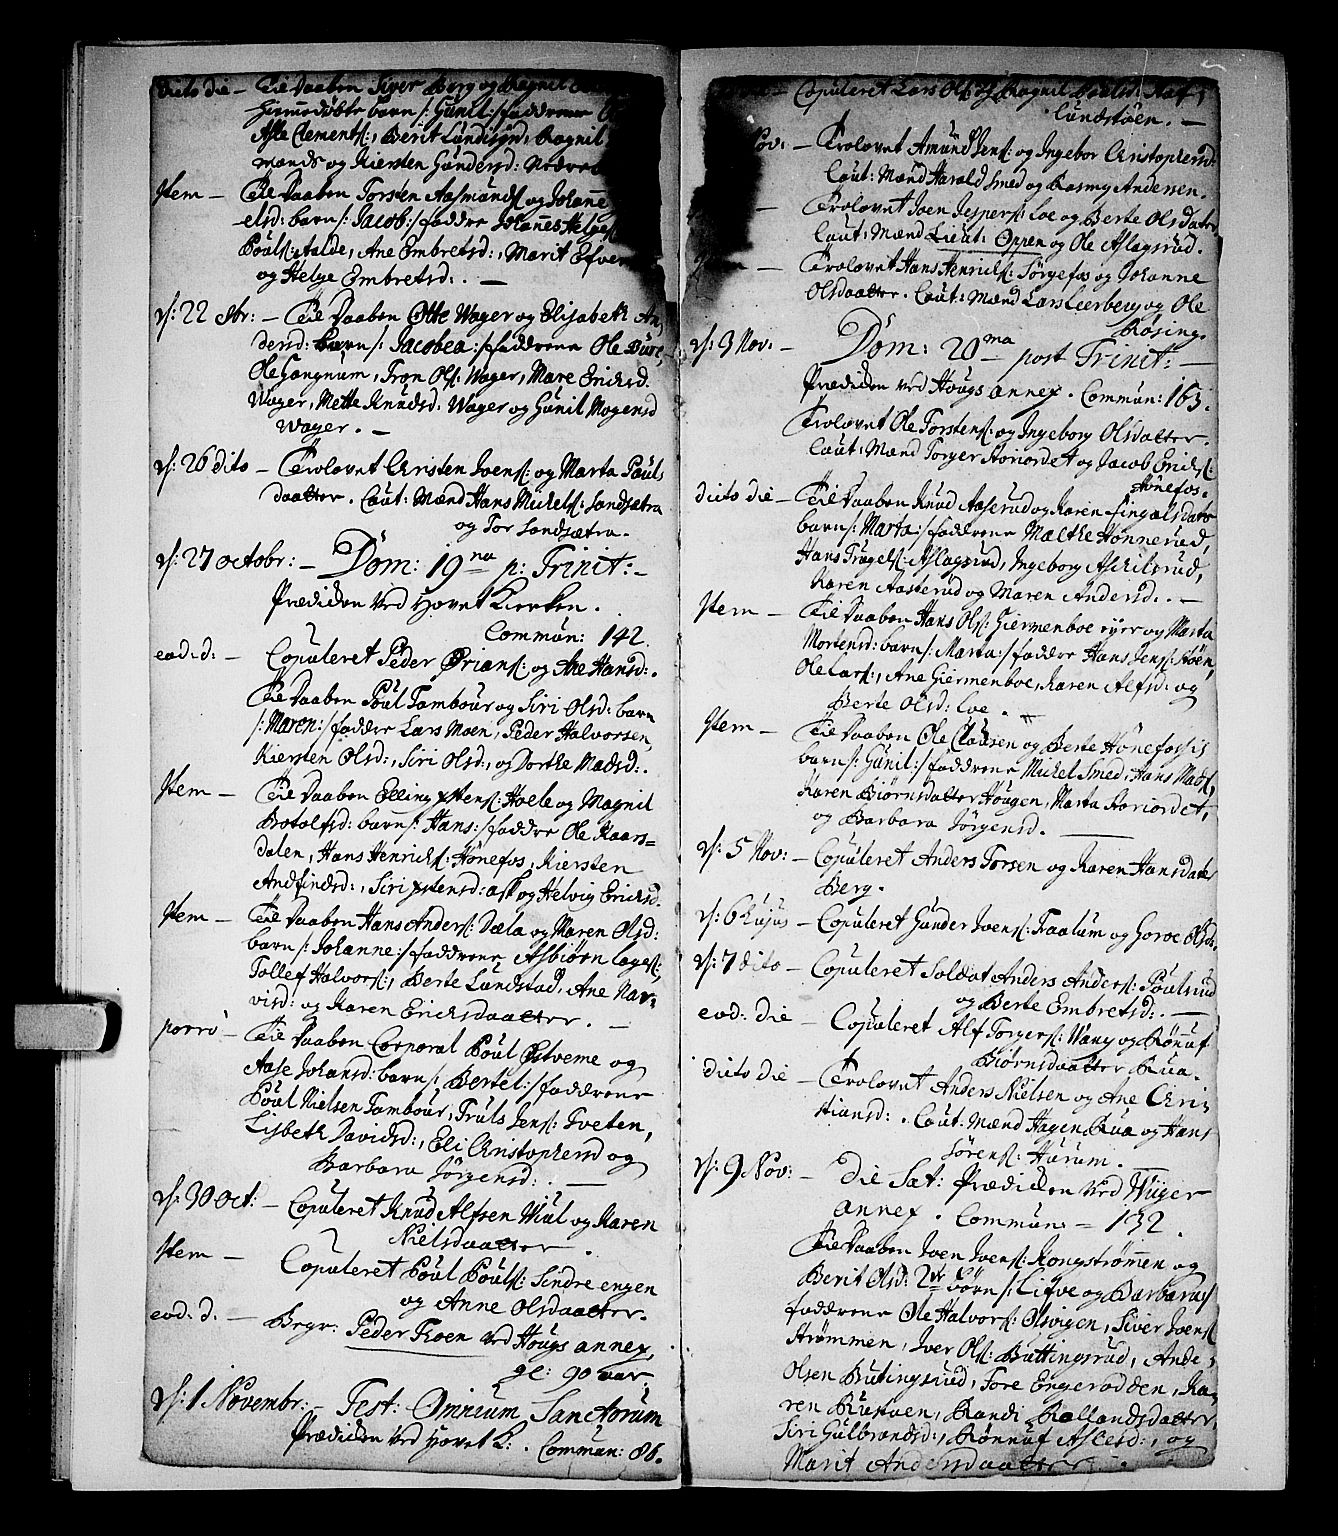 dieto die – Til Daaben Siver Berg og Ragnil
hiemmedøbte barn /: Gunil :/ faddrene
Asle Clements:, Berit Lundisyn, Ragnil
mands og Kiersten Gundersd:
Item – Til Daaben Torsten Aasmunds: og Johanne
elsd: barn /: Jacob :/ faddre Johannes Helges:
Pouls: Aalde, Ane Embretsd:, Marit
og Helge Embretsd: . –
d: 22 8br: – Til Daaben Otte Wager og Elisabeth An,
dersd: barn /: Jacobea :/ faddrene Ole Dure,
Ole Gangnum, Tron Ols: Wager, Mare Ericksd.
Wager, Mette Knudsd: Wager og Gunil Mogensd
Wager. –
d: 26 dito – Trolovet Christen Ivens: og Marta Pouls
daatter. Caut: Mænd Hans Mickels: Landsætra
og Tor Landsætra.
d: 27 octobr: – Dom: 19na p: Trinit: –
Prædicken ved Hovet Kircken.
Commun: 142.
eod: d: – Copuleret Peder Ørians: og Ane Hansd: .
Til Daaben Poul Tambour og Siri Olsd: barn
/: Maren :/ faddre Lars Moen, Peder Halvorsen,
Kiersten Olsd:, Siri Olsd:, og Dorthe Madsd: .
Item – Til Daaben Elling Xstens: Hoele og Magnil
Botolfsd: barn /: Hans :/ faddre Ole Kaars=
dalen, Hans Henrichs: Hönefos, Kiersten
Andfindsd:, Siri Xstensd: Ask og Helvig Ericksd.
Item – Til Daaben Hans Anders: Dæla og Maren Olsd:
barn /: Johanne :/ faddrene Asbiörn Lages:,
Tollef Halvors:, Berte Lundstad, Ane Nar=
visd: og Karen Ericksdaatter. –
porro – Til Daaben Corporal Poul Østveme og
Aase Johansd: barn /: Bertel :/ faddrene
Poul Nielsen Tambour, Truls Jens: Tveten,
Lisbeth Davidsd:, Eli Christophersd og
Barbara Jörgensd: . –
d: 30 Oct: – Copuleret Knud Alfsen Wiul og Karen
Nielsdaatter .
Item – Copuleret Poul Pouls: Sindre engen
og Anne Olsdaatter.
eod. d. – Begr: Peder Troen ved Hougs annex,
gl: 90 aar.
d: 1 Novembr: – Fest: Omnium Sanctorum
Prædicken ved Hovet K: . Commun: 86.
Copuleret Lars Ols: og Ragnil
Lundstöen. –
Nov: – Trolovet Amund Jens: og Ingebor Christophersd:
Caut: Mænd Harald Smed og Rasmg Andersen.
– Trolovet Joen Jespers: Loe og Berte Olsdater
Caut: Mænd Lieut: Oppen og Ole Aslagsrud.
– Trolovet Hans Henrichs: Sörgefos og Johanne
Olsdaatter. Caut: Mænd Lars Leerberg og Ole
Røsing.
d: 3 Nov: – Dom: 20ma post Trinit: –
Prædicken ved Hougs annex. Commun: 163.
Trolovet Ole Torstens: og Ingeborg Olsdatter.
Caut: Mænd Torger Storiordet og Jacob Ericks:
Hönefos.
dieto die – Til Daaben Knud Aaserud og Karen Fingalsdater
barn /: Marta :/ faddrene Malthe Hönnerud,
Hans Trugels: Aslagsrud, Ingeborg Askilsrud,
Karen Aasterud og Maren Andersd: . –
Item – Til Daaben Hans Ols: Giermenboe eyer og Marta
Mortensd: barn /: Marta :/ faddre Hans Jens: Stöen,
Ole Lars:, Ane Giermenboe, Karen Alfsd: og
Berte Olsd: Loe .
Item – Til Daaben Ole Clausen og Berte Hönefossis
barn /: Gunil :/ faddrene Mickel Smed, Hans Mads:,
Karen Biörnsdatter Hougen, Marta Storiordet,
og Barbara Jörgensd. –
d: 5 Nov: – Copuleret Anders Torsen og Karen Hansdater
Berg.
d: 6 Hujus – Copuleret Gunder Ivens: Traalum og Goroe Olsd:
d: 7 dito – Copuleret Soldat Anders Anders: Poulsrud
og Berte Embretsd: . –
eod: die – Copuleret Alf Torgers: Wang og Rönnuf
Biörnsdaatter Rua.
dieto die – Trolovet Anders Nielsen og Ane Chri,
stiansd: . Caut: Mænd Hagen Rua og Hans
Sörens: Harum.
d: 9 Nov: – die Sat: Prædicken ved Wiiger
annex . Commun: – 132 .
Til Daaben Iven Ivens: Kongströmen og
Berit Olsd: 2de börn /: Lifve og Barbara :/
faddrene Ole Halvors: Olsvigen, Siver Ivens:
Strömmen, Iver Ols: Buttingsrud, Ande,
Olsen Butingsrud, Tore Engerodden, Ka,
ren Rustoen, Randi Rollandsdatter,
Siri Gulbrandsd:, Rönnuf Aslesd:, og
Marit Andersdaatter .